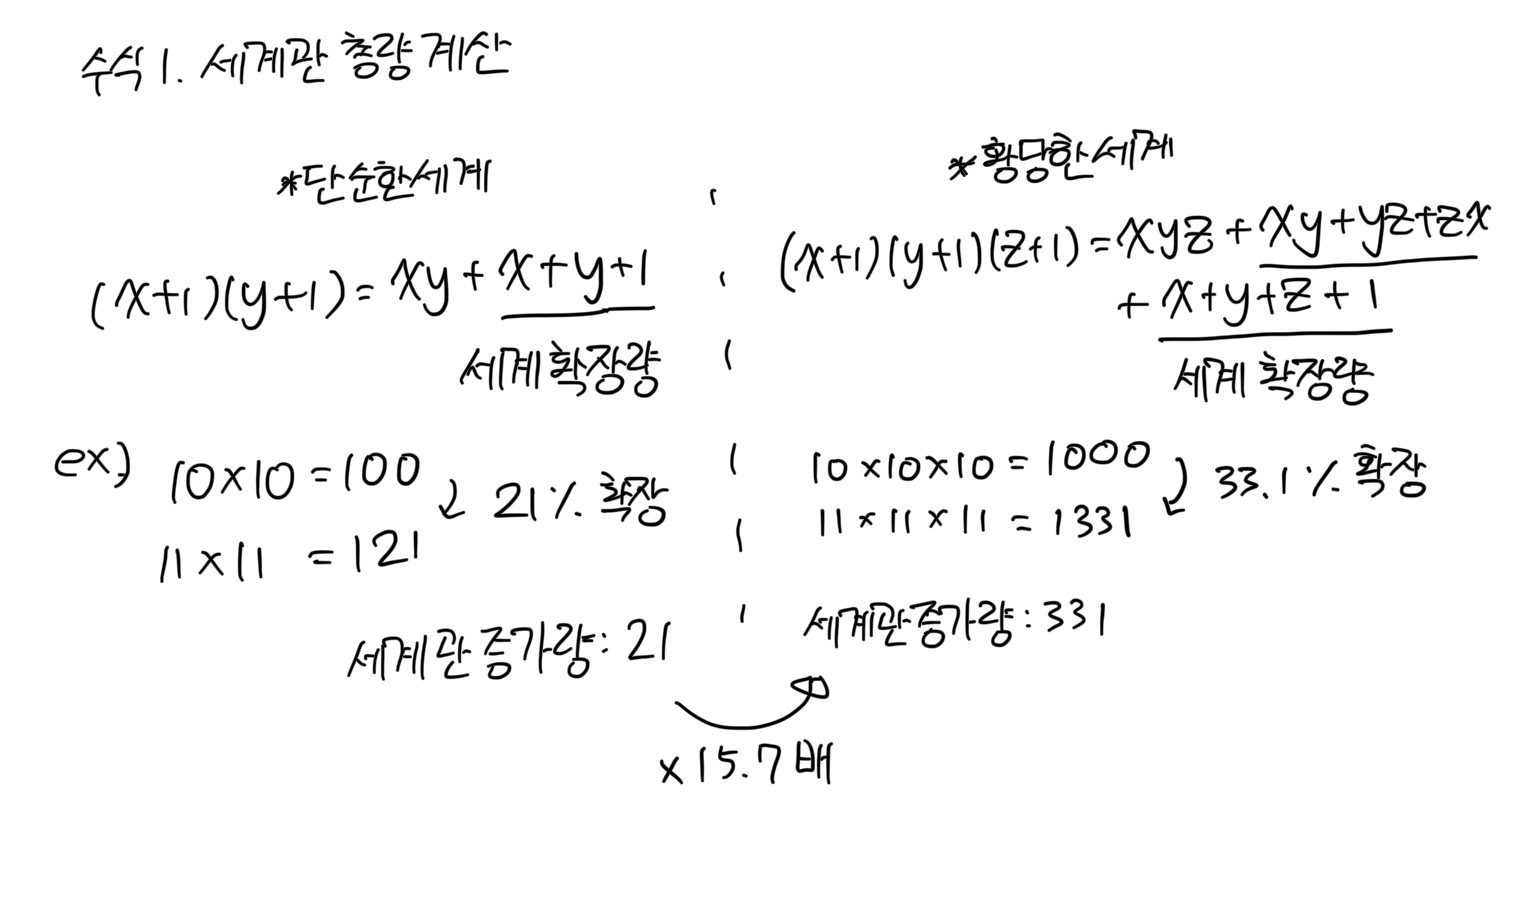 수식 1. 세계관 총량 계산
*단순한세계
(x+1)(y+1) = xy + x+y+1
세계확장량
ex) 10×10 = 100
21% 확장
11×11 = 121
세계관증가량: 21
*황당한세계
(x+1)(y+1)(z+1) = xyz + xy+yz+zx
+ x+y+z+1
세계 확장량
10×10×10 = 1000
33.1% 확장
11×11×11 = 1331
세계관증가량: 331
×15.7배